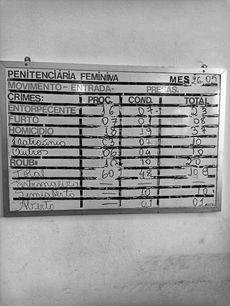 PENITENCIÁRIA FEMINIVA MES 26.05
MOVIMENTO - ENTRADA - PRESAS.
CRIMES: PROC. COND. TOTAL
ENTORPECENTE 16 07 23
FURTO 07 01 08
HOMICIDIO 18 19 37
Latrocínio 03 07 10
Outros 06 04 10
ROUB= 10 10 20
Total 60 48 108
Estrangeira
Semiaberto 10 10
Aberto 01 01